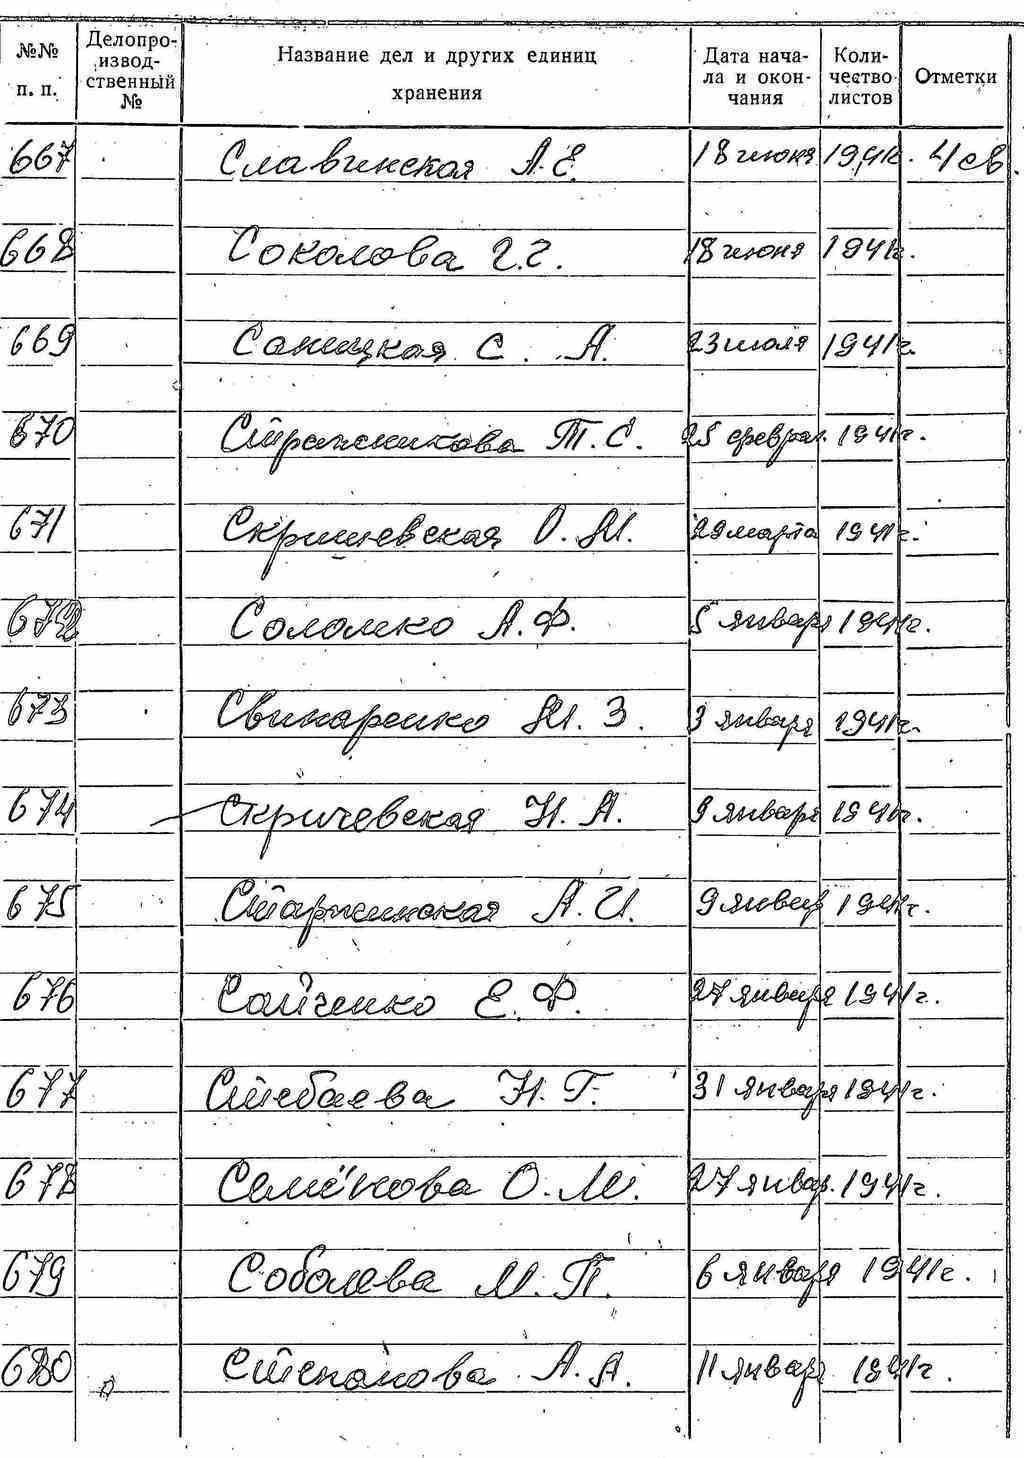 №№ п. п. Делопроизводственный № Название дел и других единиц хранения Дата начала и окончания Количество листов Отметки
667 Славинская А.Е. 18 июня 1941г.
668 Соколова Г.Г. 18 июня 1941г.
669 Саницкая С. А. 23 июля 1941г.
670 Стражникова Т.С. 25 феврал. 1941г.
671 Скришевская О.М. 29 марта 1941г.
672 Соломко А.Ф. 5 января 1941г.
673 Свинаренко М. З. 3 января 1941г.
674 Скричевская Н.А. 9 января 1941г.
675 Старжинская А.И. 9 январ 1941г.
676 Сайченко Е.Ф. 27 января 1941г.
677 Стебаева Н.Г. 31 января 1941г.
678 Семёнова О.М. 27 январ. 1941г.
679 Соболева М.П. 6 января 1941г.
680 Степанова А.А. 11 январ 1941г.